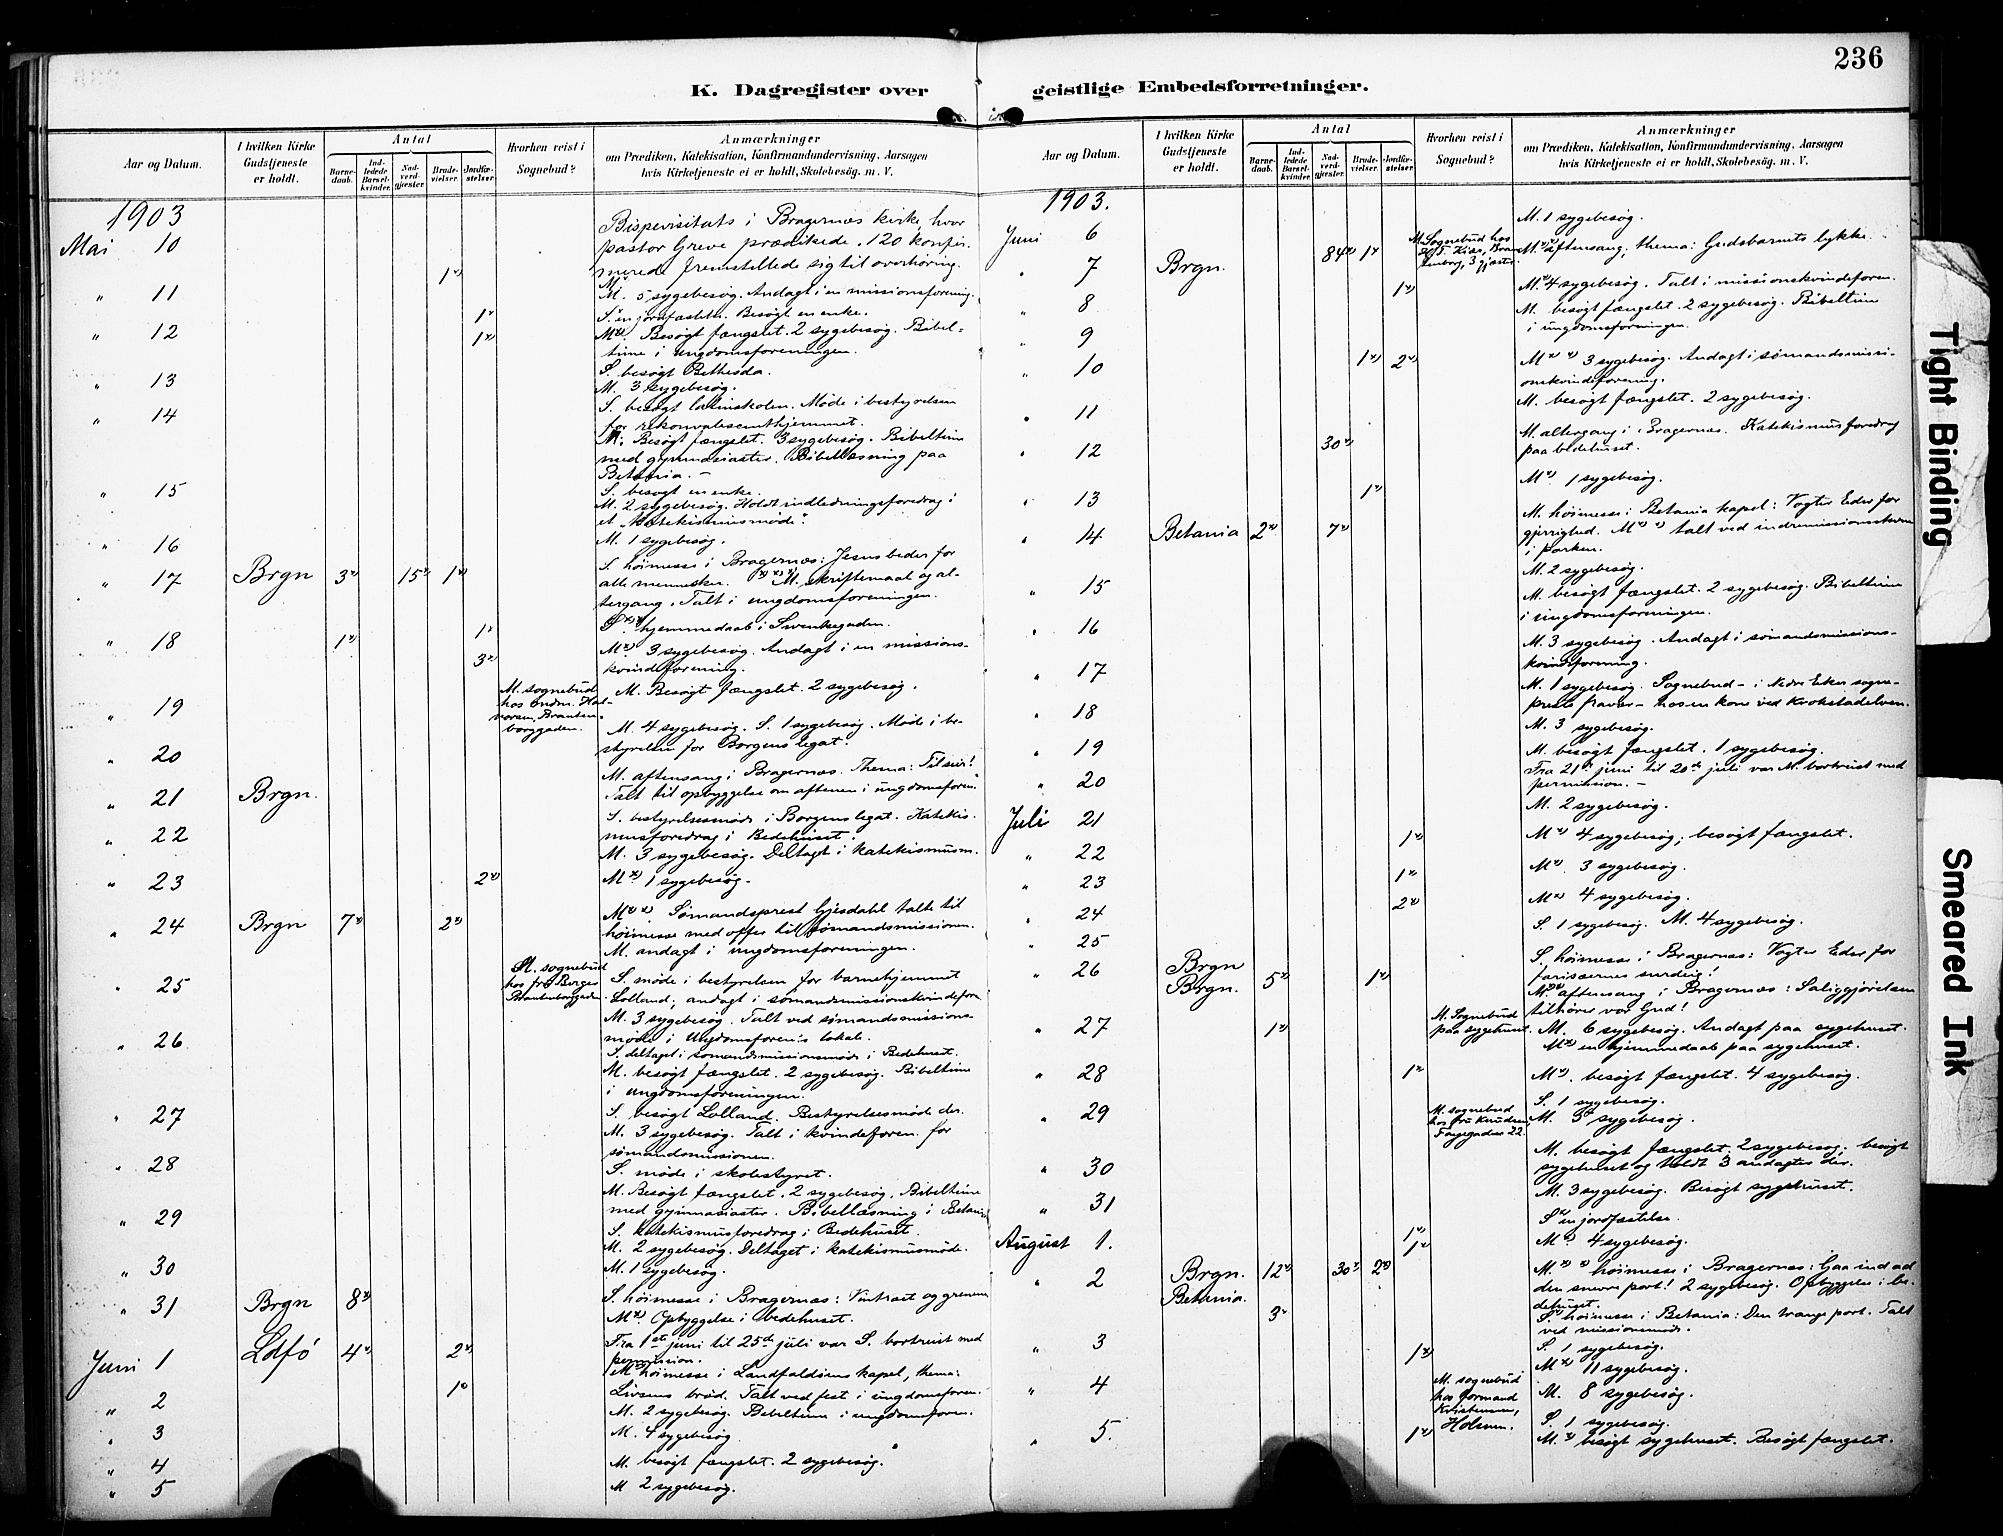 236
K. Dagregister over geistlige Embedsforretninger.
Aar og Datum.
I hvilken Kirke Gudstjeneste er holdt.
Antal
Barne-daab.
Ind-ledede Barsel-kvinder.
Nad-verd-gjæster
Brude-vielser.
Jordfæ-stelser
Hvorhen reist i Sognebud?
Anmærkninger
om Prædiken, Katekisation, Konfirmandundervisning, Aarsagen
hvis Kirketjeneste ei er holdt, Skolebesøg. m. V.
1903
Mai 10 1
Bispevisitats i Bragernæs kirke, hvor
pastor Greve prædikede. 120 konfir-
merede fremstillede sig til overhøring.
" 11 1
M. 5 sygebesøg. Andagt i en missionsforening.
S. en jordfæstelse. Besøgt en enke.
" 12 1
M. Besøgt fængslet. 2 sygebesøg. Bibel-
time i ungdomsforeningen.
" 13
S. besøgt Bethesda.
M. 3 sygebesøg.
" 14
S. besøgt latinskolen. Møde i bestyrelsen
for rekonvalescenthjemmet.
M. Besøgt fængslet. 3 sygebesøg. Bibeltime
med gymnasiaster. Bibellæsning paa
Betania. –
" 15
S. besøgt en enke.
M. 2 sygebesøg. Holdt indledningsforedrag i
et "katekismusmøde".
" 16
M. 1 sygebesøg.
" 17 Brgn 3 15 1
S. høimesse i Bragernæs: Jesus beder for
alle mennesker. M. skriftemaal og al-
tergang. Talt i ungdomsforeningen.
" 18 1 1
S. hjemmedaab i Svenkegaden.
3
M. 3 sygebesøg. Andagt i en missions-
kvindeforening.
" 19
M. sognebud
hos
borggaden.
M. Besøgt fængslet. 2 sygebesøg.
" 20
M. 4 sygebesøg. S. 1 sygebesøg. Møde i be-
styrelsen for Borgens legat.
" 21 Brgn.
M. aftensang i Bragernæs. Thema: Til seier!
Talt til opbyggelse om aftenen i ungdomsforen.
" 22
S. bestyrelsesmøde i Borgens legat. Katekis-
musforedrag i Bedehuset.
M. 3 sygebesøg. Deltagt i katekismusm.
" 23 2
M. 1 sygebesøg.
" 24 Brgn 7 2
M. Sømandsprest Gjesdahl talte til
høimesse med offer til sømandsmissionen.
M. andagt i ungdomsforeningen.
" 25
M. sognebud
hos fru Berger
Brantenborggaden
S. møde i bestyrelsen for barnehjemmet
Lolland; andagt i sømandsmissionskvindeforen
M. 3 sygebesøg. Talt ved sømandsmissions-
møde i Ungdomsforen.s lokale.
" 26
S. deltaget i sømandsmissionsmøde i Bedehuset.
M. besøgt fængslet. 2 sygebesøg. Bibeltime
i ungdomsforeningen.
" 27
S. besøgt Lolland. Bestyrelsesmøde der.
M. 3 sygebesøg. Talt i kvindeforen. for
sømandsmissionen.
" 28
S. møde i skolestyret.
M. Besøgt fængslet. 2 sygebesøg. Bibeltime
med gymnasiaster. Bibellæsning i Betania
" 29
S. katekismusforedrag i Bedehuset.
M. 2 sygebesøg. Deltaget i katekismusmøde.
" 30
M. 1 sygebesøg.
" 31 Brgn 8
S. høimesse i Bragernæs: Vintræet og grenene
M. Opbyggelse i bedehuset.
Juni 1 Ldfó 4 2
Fra 1ste juni til 25de juli var S. bortreist med
permission.
M høimesse i Landfaldøens kapel, thema:
Livsens brød. Talt ved fest i ungdomsforen.
" 2 1
M. 2 sygebesøg. Bibeltime i ungdomsforen.
" 3
M. 4 sygebesøg
" 4
M. besøgt fængslet. 2 sygebesøg.
" 5
M 2 sygebesøg.
Aar og Datum.
I hvilken Kirke Gudstjeneste er holdt.
Antal
Barne-daab.
Ind-ledede Barsel-kvinder.
Nad-verd-gjæster
Brude-vielser.
Jordfæ-stelser
Hvorhen reist i Sognebud?
Anmærkninger
om Prædiken, Katekisation, Konfirmandundervisning, Aarsagen
hvis Kirketjeneste ei er holdt, Skolebesøg. m. V.
1903.
Juni 6
M. 1 sygebesøg.
" 7 Brgn. 84 1
M. Sognebud hos
3 gjæster
M. aftensang, thema: Gudsbarnets lykke.
" 8 1
M. 4 sygebesøg. Talt i missionskvindeforen.
" 9
M. besøgt fængslet. 2 sygebesøg. Bibeltime
i ungdomsforeningen.
" 10 1 2
M. 3 sygebesøg. Andagt i sømandsmissi-
onskvindeforening.
" 11
M. besøgt fængslet. 2 sygebesøg.
" 12 30
M. altergang i Bragernæs. Katekismusforedrag
paa bedehuset.
" 13 1
M. 1 sygebesøg.
" 14 Betania 2 7
M. høimesse i Betania kapel: Vogter Eder for
gjerrighed. M. talt ved indremissionsstevne
i parken.
" 15
M. 2 sygebesøg.
" 16
M. besøgt fængslet. 2 sygebesøg. Bibeltime
i ungdomsforeningen.
" 17
M. 3 sygebesøg. Andagt i sømandsmissions-
kvindeforening.
" 18
M. 1 sygebesøg. Sognebud – i Nedre Eker sogne-
prests fravær – hos en kone ved Krokstadelven.
" 19
M. 3 sygebesøg.
" 20
M. besøgt fængslet. 1 sygebesøg.
Fra 21de juni til 20de juli var M. bortreist med
permission. –
Juli 21
M. 2 sygebesøg.
" 22 1
M. 4 sygebesøg; besøgt fængslet.
" 23 1
M. 3 sygebesøg.
" 24 2
M. 4 sygebesøg.
" 25
S. 1 sygebesøg. M. 4 sygebesøg.
" 26 Brgn
Brgn. 5 1
S. høimesse i Bragernæs: Vogter Eder for
farisæernes surdeig!
M. aftensang i Bragernæs: Saliggjørelsen
tilhører vor Gud!
" 27 1
M. Sognebud
paa sygehuset.
M. 6 sygebesøg. Andagt paa sygehuset.
M. en hjemmedaab paa sygehuset.
" 28 1
M. besøgt fængslet. 4 sygebesøg.
" 29
M. sognebud
hos fru Knudsen,
22.
S. 1 sygebesøg.
M. 3 sygebesøg.
" 30
M. besøgt fængslet. 2 sygebesøg; besøgt
sygehuset og holdt 3 andagter der.
" 31
M. 3 sygebesøg. Besøgt sygehuset.
August 1. 1
1
S. en jordfæstelse.
M. 4 sygebesøg.
" 2 Brgn. 12 30 2
Betania. 3
M. høimesse i Bragernæs: Gaa ind ad
den snevre port! 2 sygebesøg. Opbyggelse i be-
dehuset.
S. høimesse i Betania: Den trange port. Talt
ved missionsmøde.
" 3 1
S. 1 sygebesøg.
M. 11 sygebesøg.
" 4
M. sognebud
hos formand
Kristensen,
Holmen.
M. 8 sygebesøg.
" 5. 1
S. 1 sygebesøg.
M. besøgt sygehuset. Besøgt fængslet.
Tight Binding
Smeared Ink